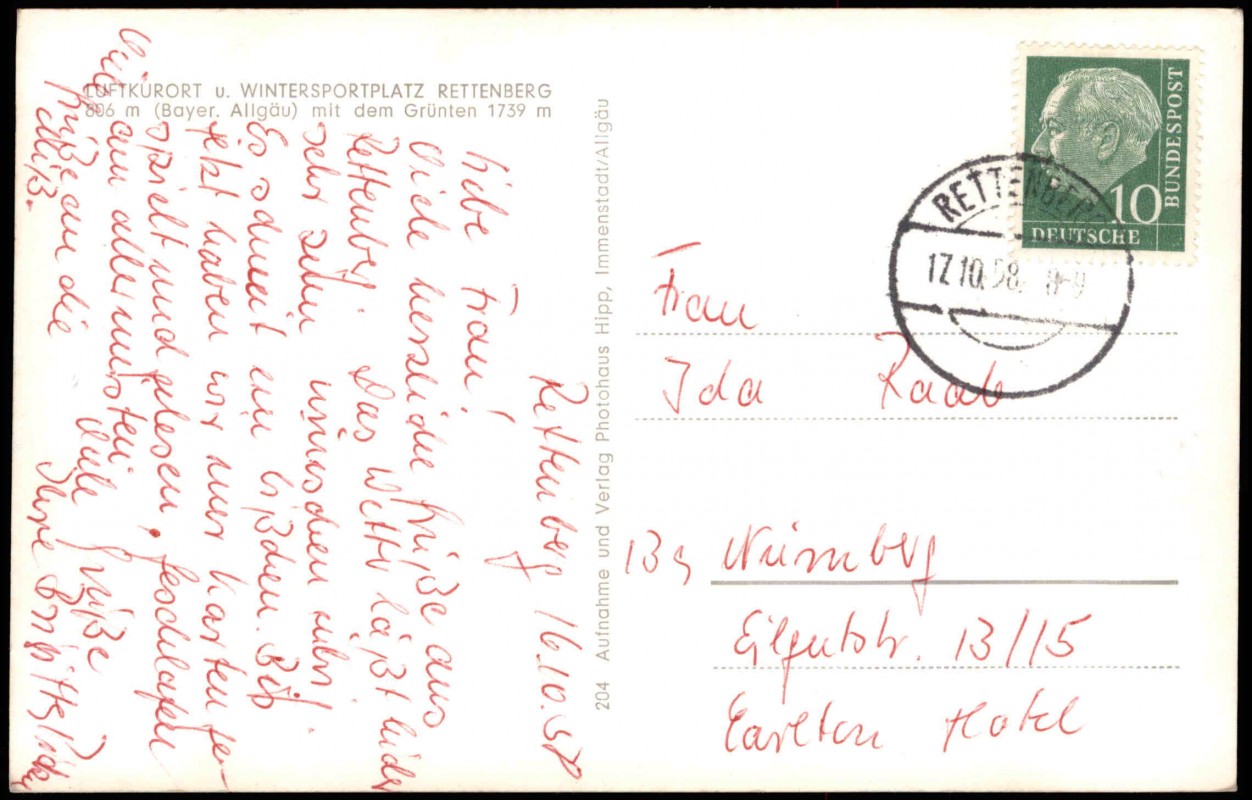 LUFTKURORT u. WINTERSPORTPLATZ RETTENBERG
806 m (Bayer. Allgäu) mit dem Grünten 1739 m
Rettenberg 16.10.58
Liebe Frau!
Viele herzliche Grüße aus
Rettenberg. Das Wetter läßt leider
sehr zu wünschen übrig.
Es schneit ein bißchen. Bis
jetzt haben wir nur Karten ge-
spielt und gelesen. Geschlafen
am allermeisten. Viele Grüße
Ihre Brigitte
Viele Grüße an die
204 Aufnahme und Verlag Photohaus Hipp, Immenstadt/Allgäu
BUNDESPOST
10
DEUTSCHE
RETTENBERG
17.10.58
Frau
Ida Raab
13a Nürnberg
Eilgutstr. 13/15
Carlton Hotel